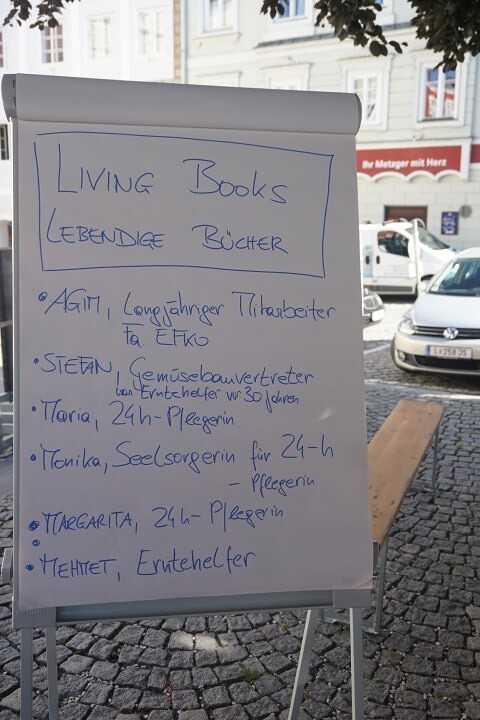 LIVING BOOKS
LEBENDIGE BÜCHER
• AGIM, Langjähriger Mitarbeiter
Fa. EFKO
• STEFAN, Gemüsebauvertreter
Erntehelfer vor 30 Jahren
• Maria, 24h-Pflegerin
• Monika, Seelsorgerin für 24-h
- Pflegerin
• MARGARITA, 24h-Pflegerin
•
• MEHMET, Erntehelfer
Ihr Metzger mit Herz